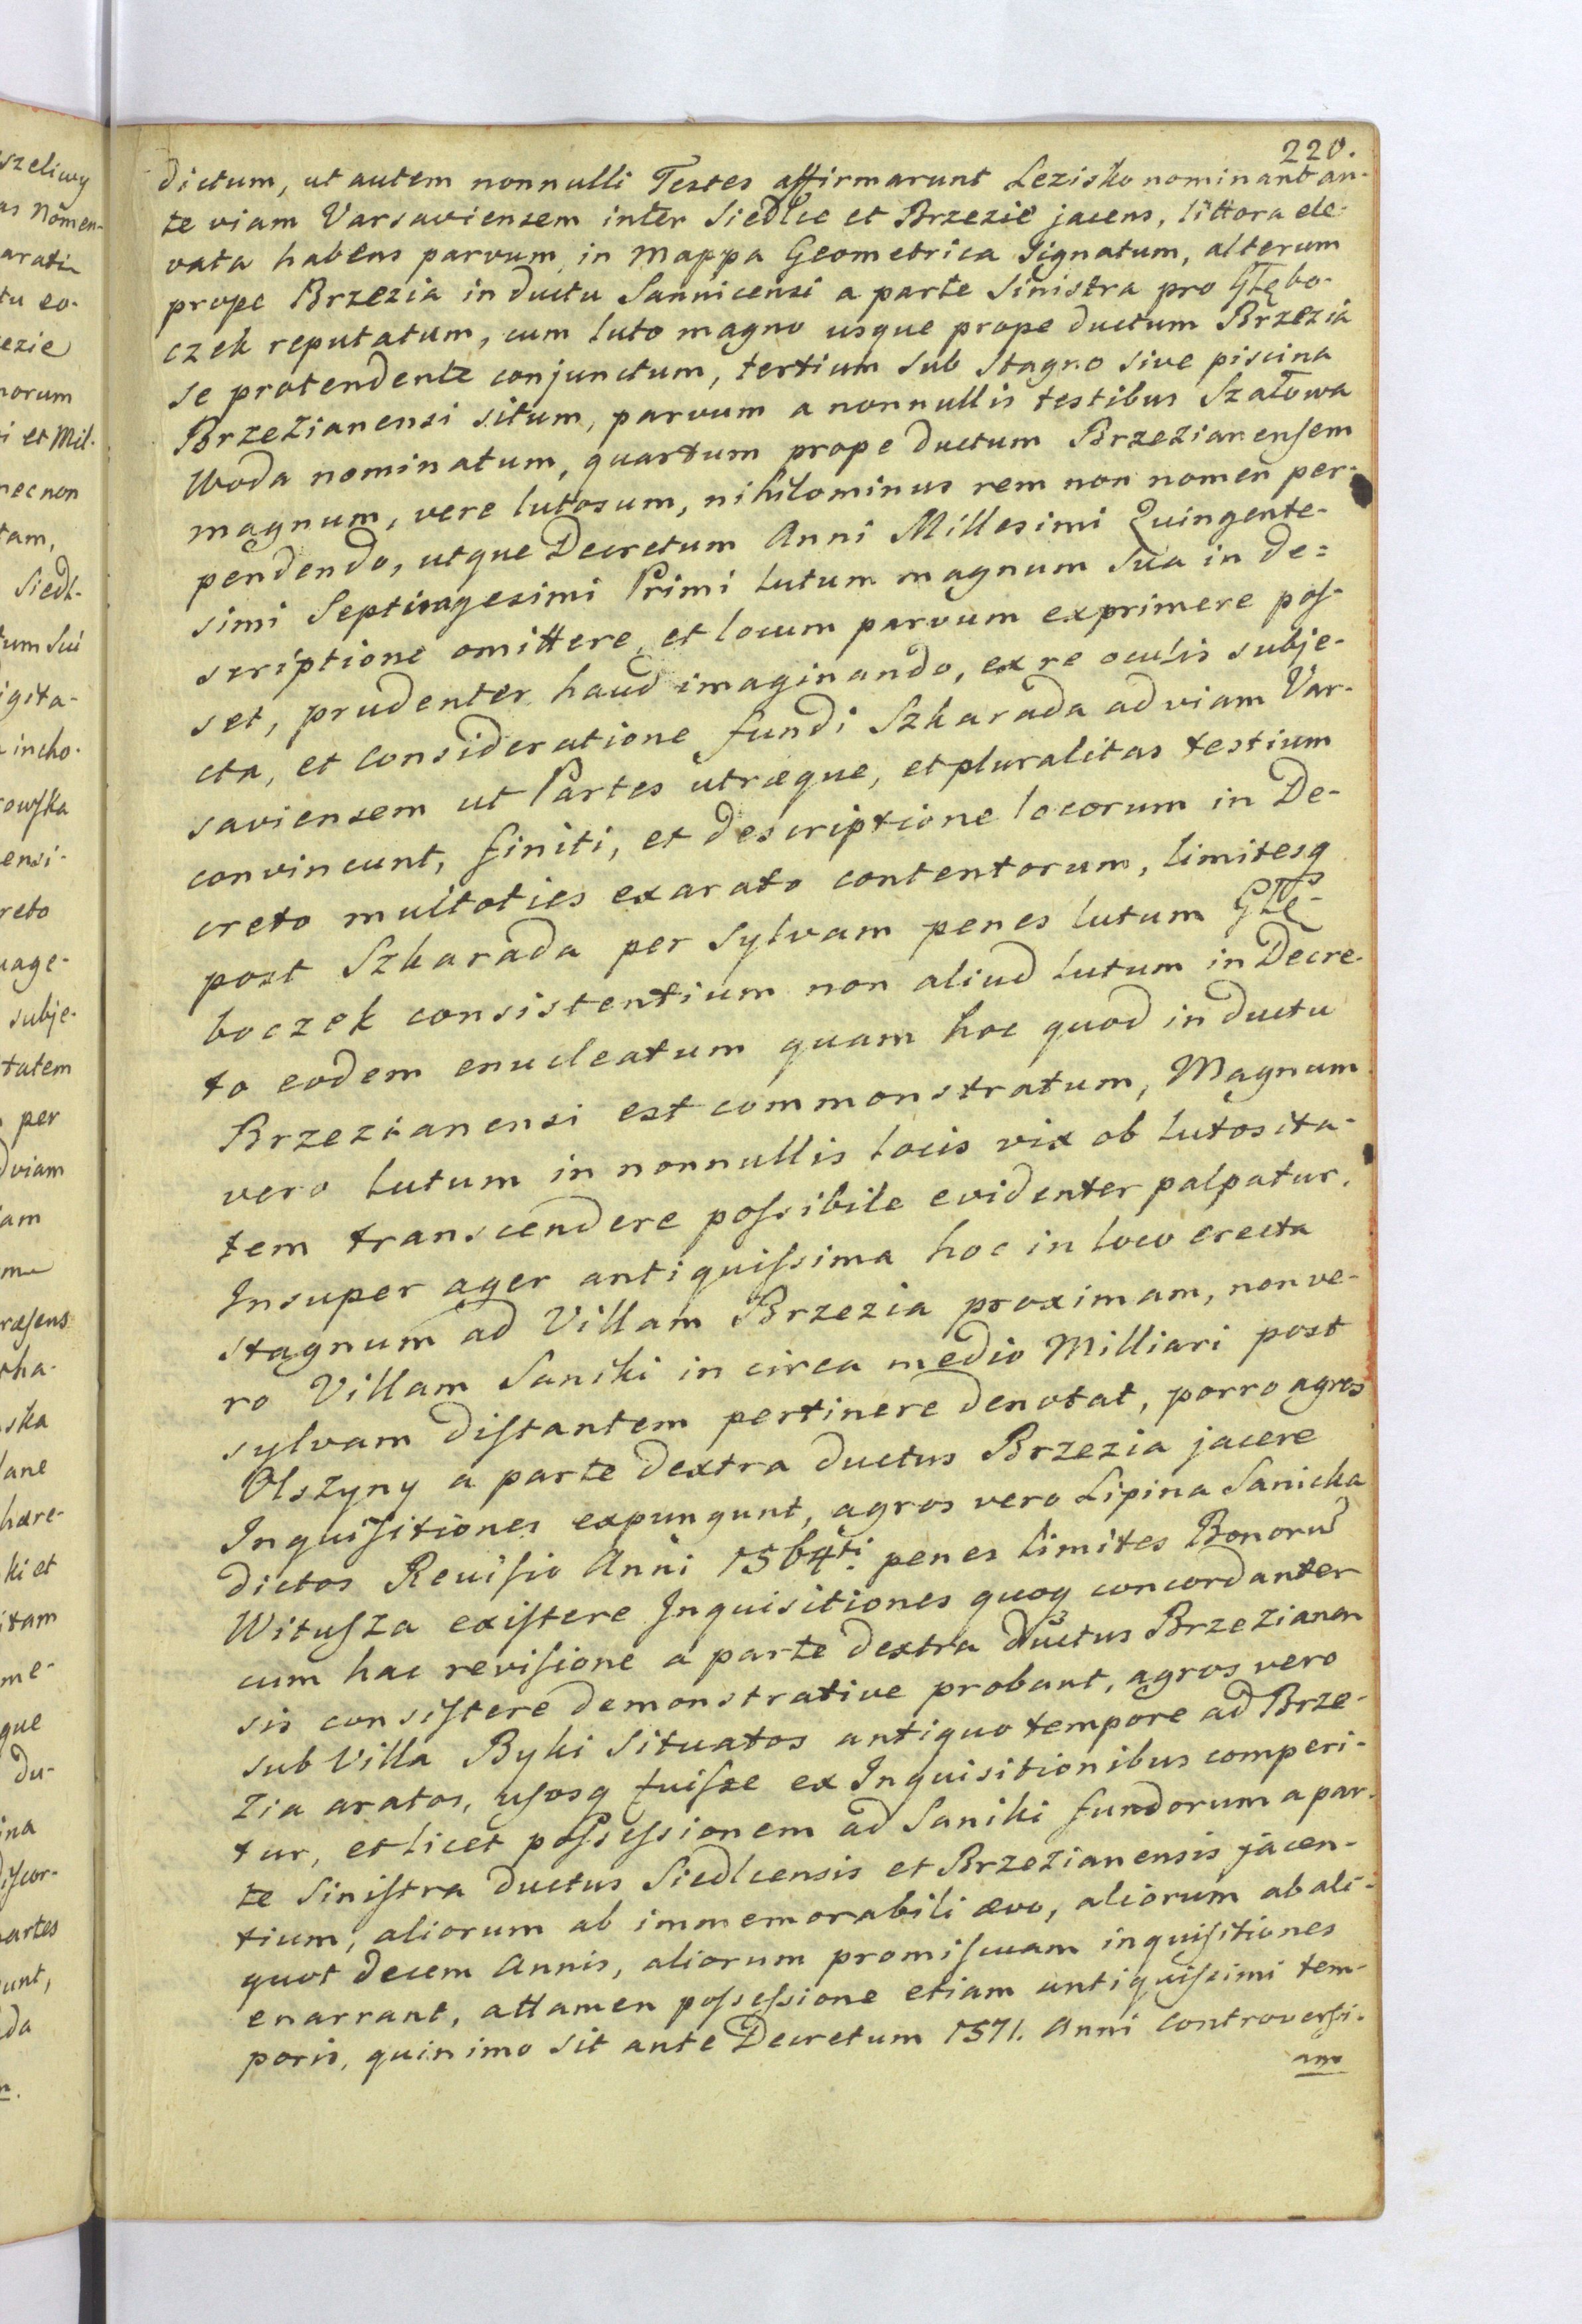 220.
dictum, ut autem nonnulli Testes affirmarunt Lezisko nominant an-
te viam Varsaviensem inter Siedlce et Brzezie jacens, littora ele-
vata habens parvum in Mappa Geometrica signatum, alterum
prope Brzezia in ductu Sannicensi a parte sinistra pro Głębo-
czek reputatum, cum luto magno usque prope ductum Brzezia
se protendente conjunctum, tertium sub stagno sive piscina
Brzezianensi situm, parvum a nonnullis testibus Szałowa
Woda nominatum, quartum prope ductum Brzezianensem
magnum, vere lutosum, nihilominus rem non nomen per-
pendendo, utque Decretum Anni Millesimi Quingente-
simi Septuagesimi Primi lutum magnum sua in de=
scriptione omittere, et locum parvum exprimere pos-
set, prudenter haud imaginando, ex re oculis subje-
cta, et consideratione fundi Szkarada ad viam Var-
saviensem ut Partes utræque, et pluralitas testium
convincunt, finiti, et descriptione locorum in De-
creto multoties exarato contentorum, limitesq
post Szkarada per sylvam penes lutum Głę-
boczek consistentium non aliud lutum in Decre-
to eodem enucleatum quam hoc quod in ductu
Brzezianensi est commonstratum, Magnum
vero lutum in nonnullis locis vix ob lutosita-
tem transcendere possibile evidenter palpatur.
Insuper ager antiquissima hoc in loco erecta
stagnum ad Villam Brzezia proximam, non ve-
ro Villam Saniki in circa medio Milliari post
sylvam distantem pertinere denotat, porro agros
Olszyny a parte dextra ductus Brzezia jacere
Inquisitiones expungunt, agros vero Lipina Sanicka
dictos Revisio Anni 1564ti penes limites Bonorũ
Witusza existere Inquisitiones quoq concordanter
cum hac revisione a parte dextra ductus Brzezianen
sis consistere demonstrative probant, agros vero
sub Villa Byki situatos antiquo tempore ad Brze-
zia aratos, usosq fuisse ex Inquisitionibus comperi-
tur, et licet possessionem ad Saniki fundorum a par-
te sinistra ductus Siedlcensis et Brzezianensis jacen-
tium, aliorum ab immemorabili ævo, aliorum ab ali-
quot decem Annis, aliorum promiscuam inquisitiones
enarrant, attamen possessione etiam antiquissimi tem-
poris, quinimo sit ante Decretum 1571. Anni controversi-
am